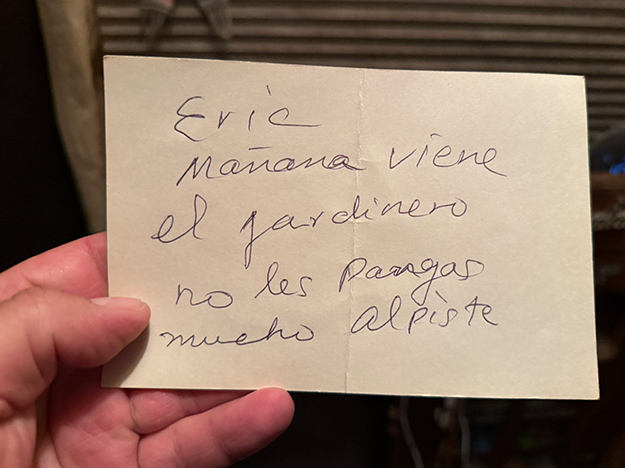 Eric
Mañana viene
el jardinero
no les pangas
mucho alpiste